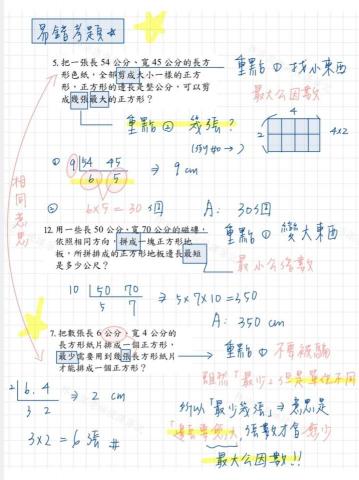 易錯考題
5. 把一張長 54 公分、寬 45 公分的長方
形色紙，全部剪成大小一樣的正方
形，正方形的邊長是整公分，可以剪
成幾張最大的正方形？
重點① 找小東西
最大公因數
4
2
4x2
重點② 幾張？
① 9 54 45
6 5
→ 9 cm
② 6x5 = 30 個
A： 30個
相同意思
12. 用一些長 50 公分、寬 70 公分的磁磚，
依照相同方向，拼成一塊正方形地
板，所拼排成的正方形地板邊長最短
是多少公尺？
重點① 變大東西
最小公倍數
10 50 70
5 7
→ 5x7x10 = 350
A： 350 cm
7. 把數張長 6 公分、寬 4 公分的
長方形紙片排成一個正方形，
最少需要用到幾張長方形紙片
才能排成一個正方形？
→ 重點① 不要被騙
雖然「最少」但是單位不同
2 6, 4
3 2
→ 2 cm
3x2 = 6 張 #
所以「最少幾張」→ 意思是
邊長要愈大，張數才會愈少
最大公因數!!